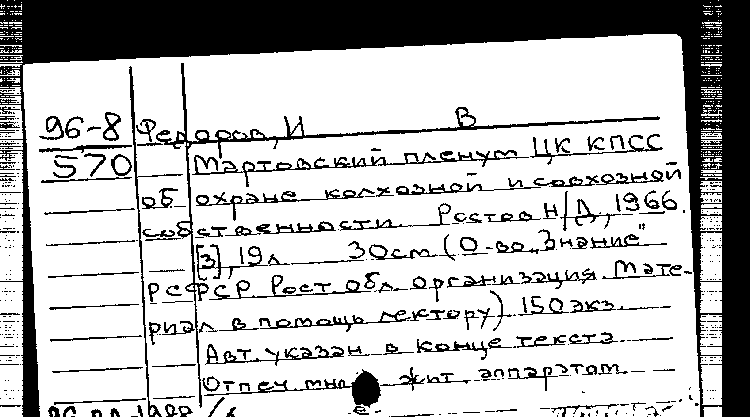 96-8 Федоров, И В
570 Мартовский пленум ЦК КПСС
об охране колхозной и совхозной
собственности. Ростов н/Д, 1966.
[3], 19л 30см (О-во „Знание"
РСФСР. Рост. обл. организация. Мате-
риал в помощь лектору) 150 экз.
Авт. указан в конце текста
Отпеч. аппаратом.